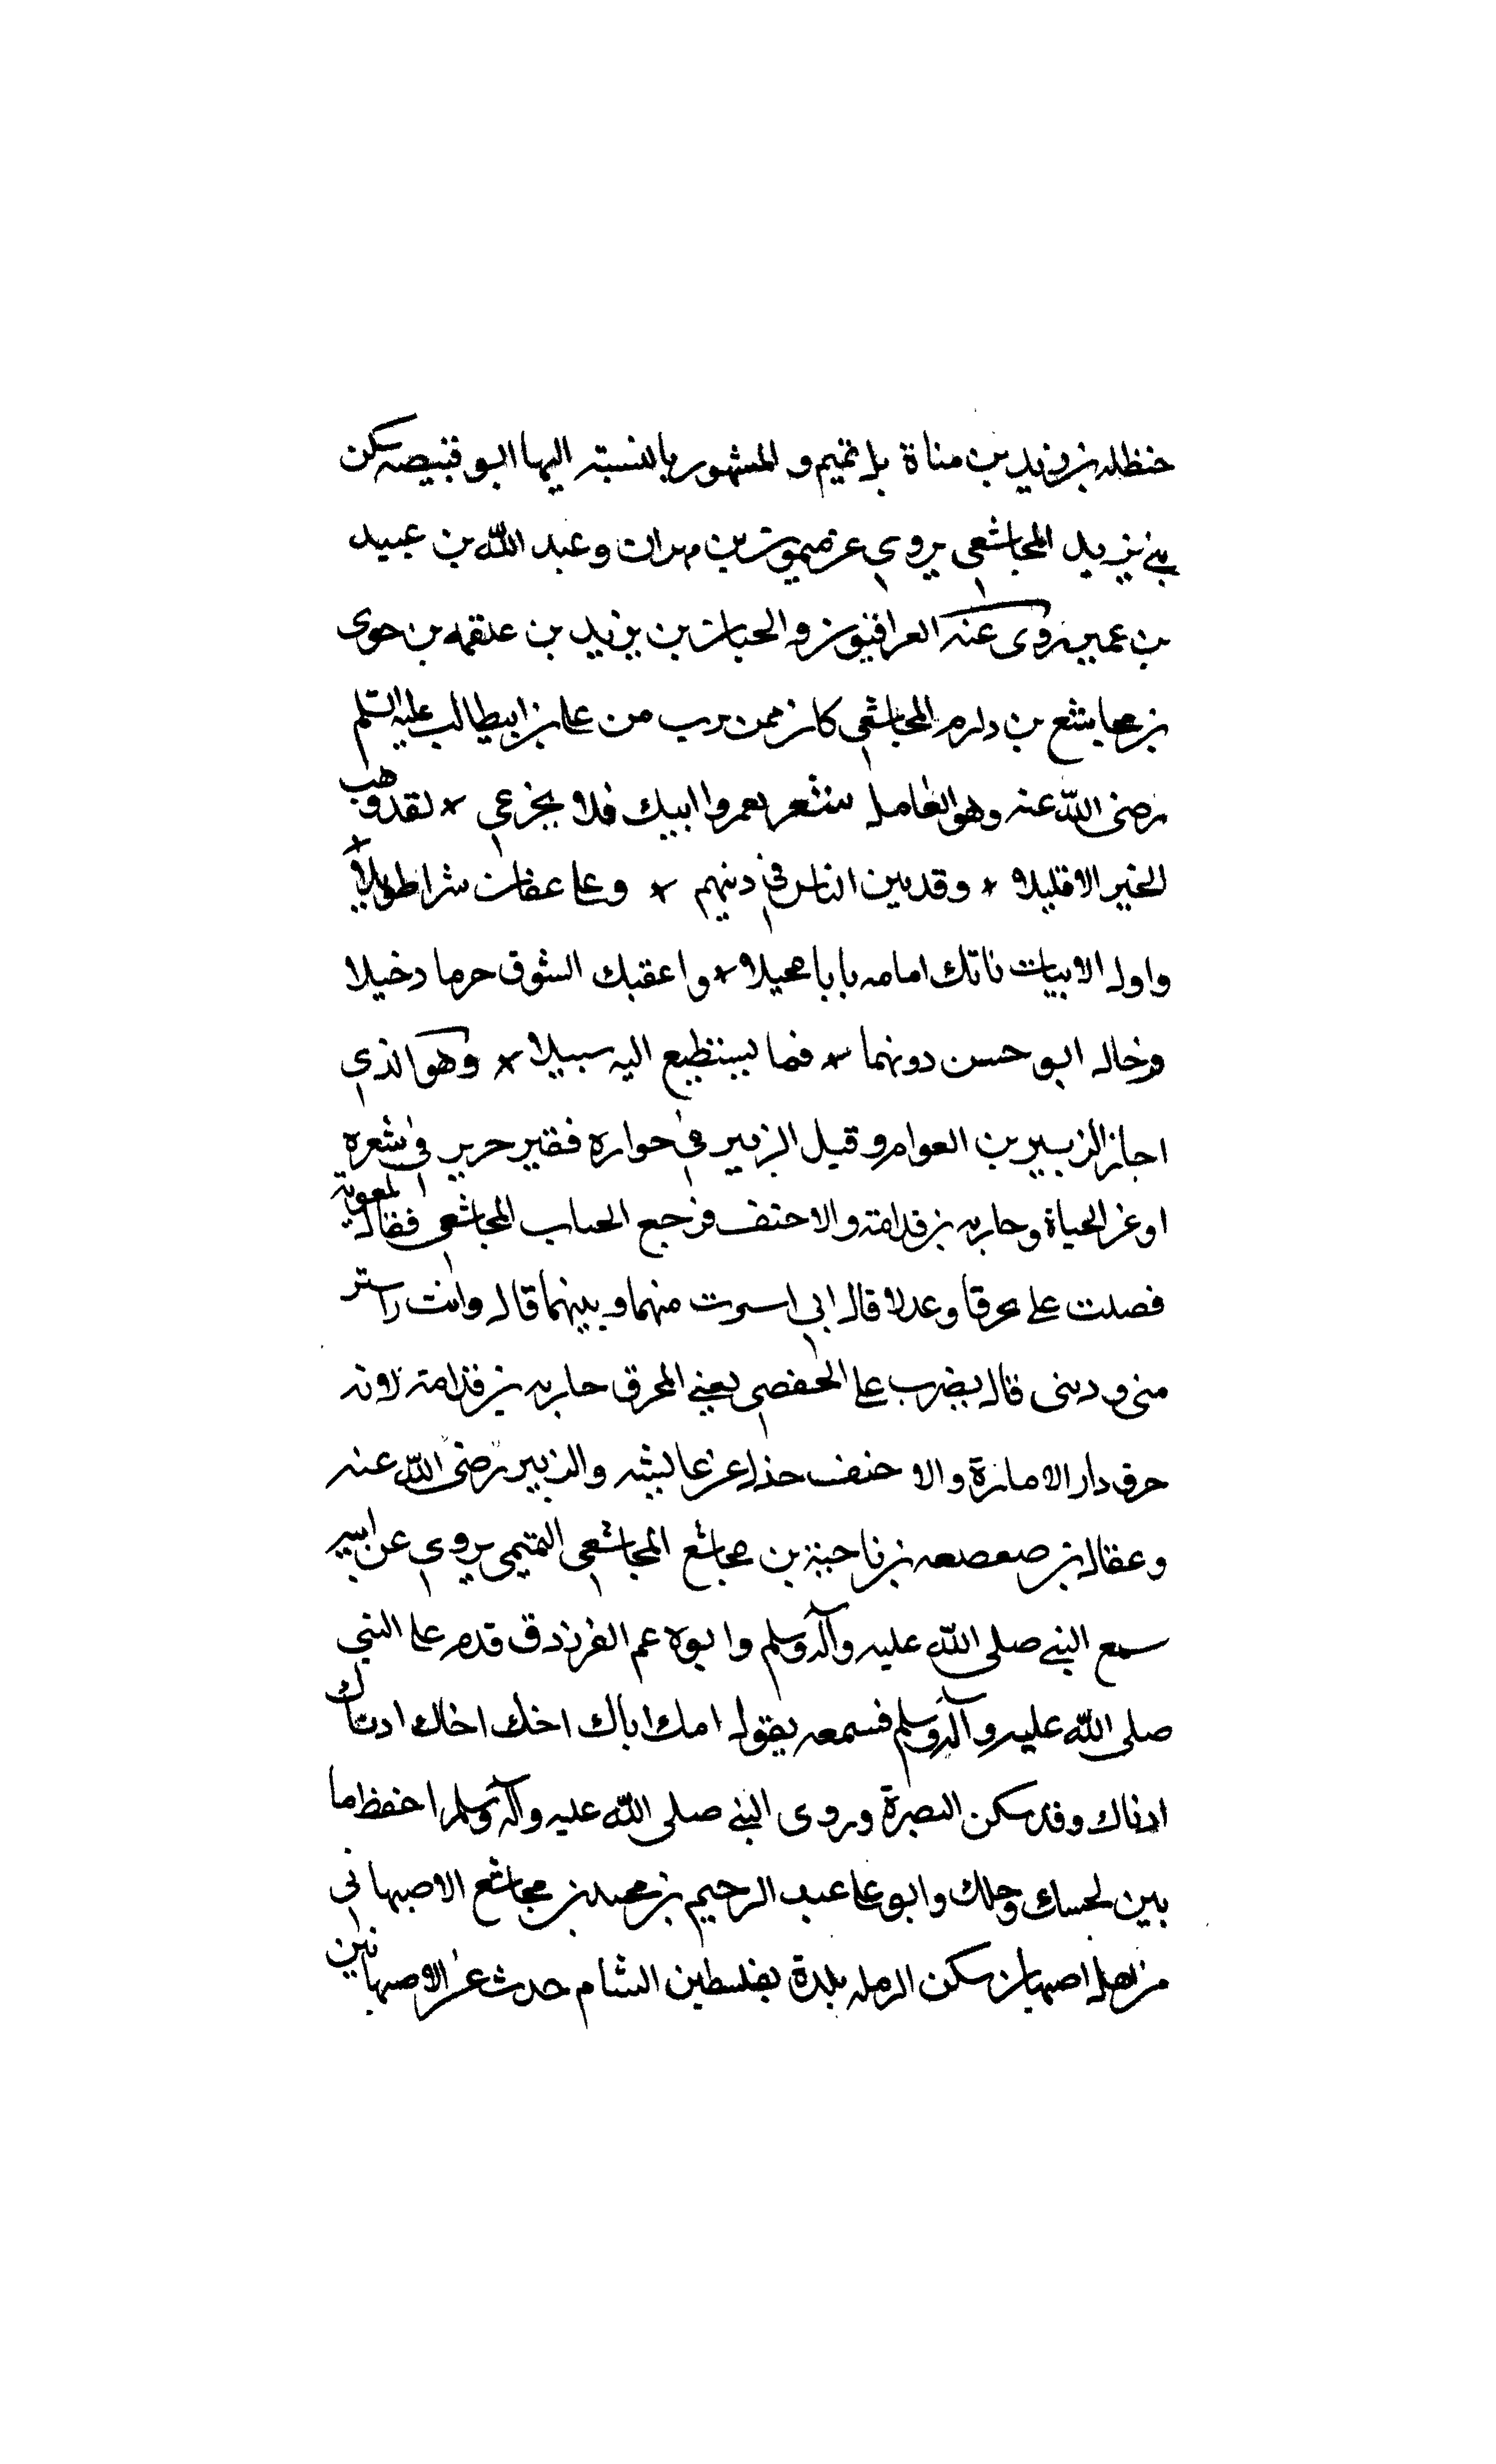 حنظله بن زيد بن مناة بل تميم و المشهور بالنسبته اليها ابو قبيصه سكن
بني يزيد المجاشعي يروي عن ميمون بن مهران وعبد الله بن عبيد
بن عمير روى عنه العراقيون والحبان بن يزيد بن علقمه بن حوى
بن مجاشع بن دارم المجاشعي كان ممن هرب من علي بن ابيطالب عليه السلم
رضي الله عنه وهو القامل شعر لعمرو ابيك فلا تجزعي * لقد ذهب
الخير الا قليلا * وقد بين الناس في دينهم * وعلى عفان شرا طويلا *
واول الابيات ناتك امامه بابا محيلا * واعقبك الشوق حرما دخيلا
وخال ابو حسن دونهما * فما يستطيع اليه سبيلا * وهو الذي
اجاز الزبير بن العوام وقيل الزبير في حواره فقير حرير في شعره
او عز الحياة وحاربه بن قدامة والاحنف فرجع الحباب المجاشعي فقال لمعوية
فصلت على محرقا وعدلا قال اني اسرت منهما وبينهما قال وانت راستر
مني و ديني قال يضرب على الحفصي يعني المحرق حاربه بن قدامة لانه
حرق دار الامارة والا حنف حذل عن عايشه والزبير رضي الله عنه
وعقال بن صعصعه بن ناجية بن مجاشع المجاشعي التميمي يروي عن ابيه
سمع النبي صلى الله عليه وآله وسلم وابوه عم الفرزدق قدم على النبي
صلى الله عليه وآله وسلم فسمعه يقول امك اباك اختك اخاك ادناك
ادناك وقد سكن البصرة وروى النبي صلى الله عليه وآله وسلم احفظ ما
بين لحييك وحلك وابو علي عبد الرحيم بن محمد بن مجاشع الاصبهاني
من اهل اصبهان سكن الرمله بلدة بفلسطين الشام حدث عن الاصبهانين